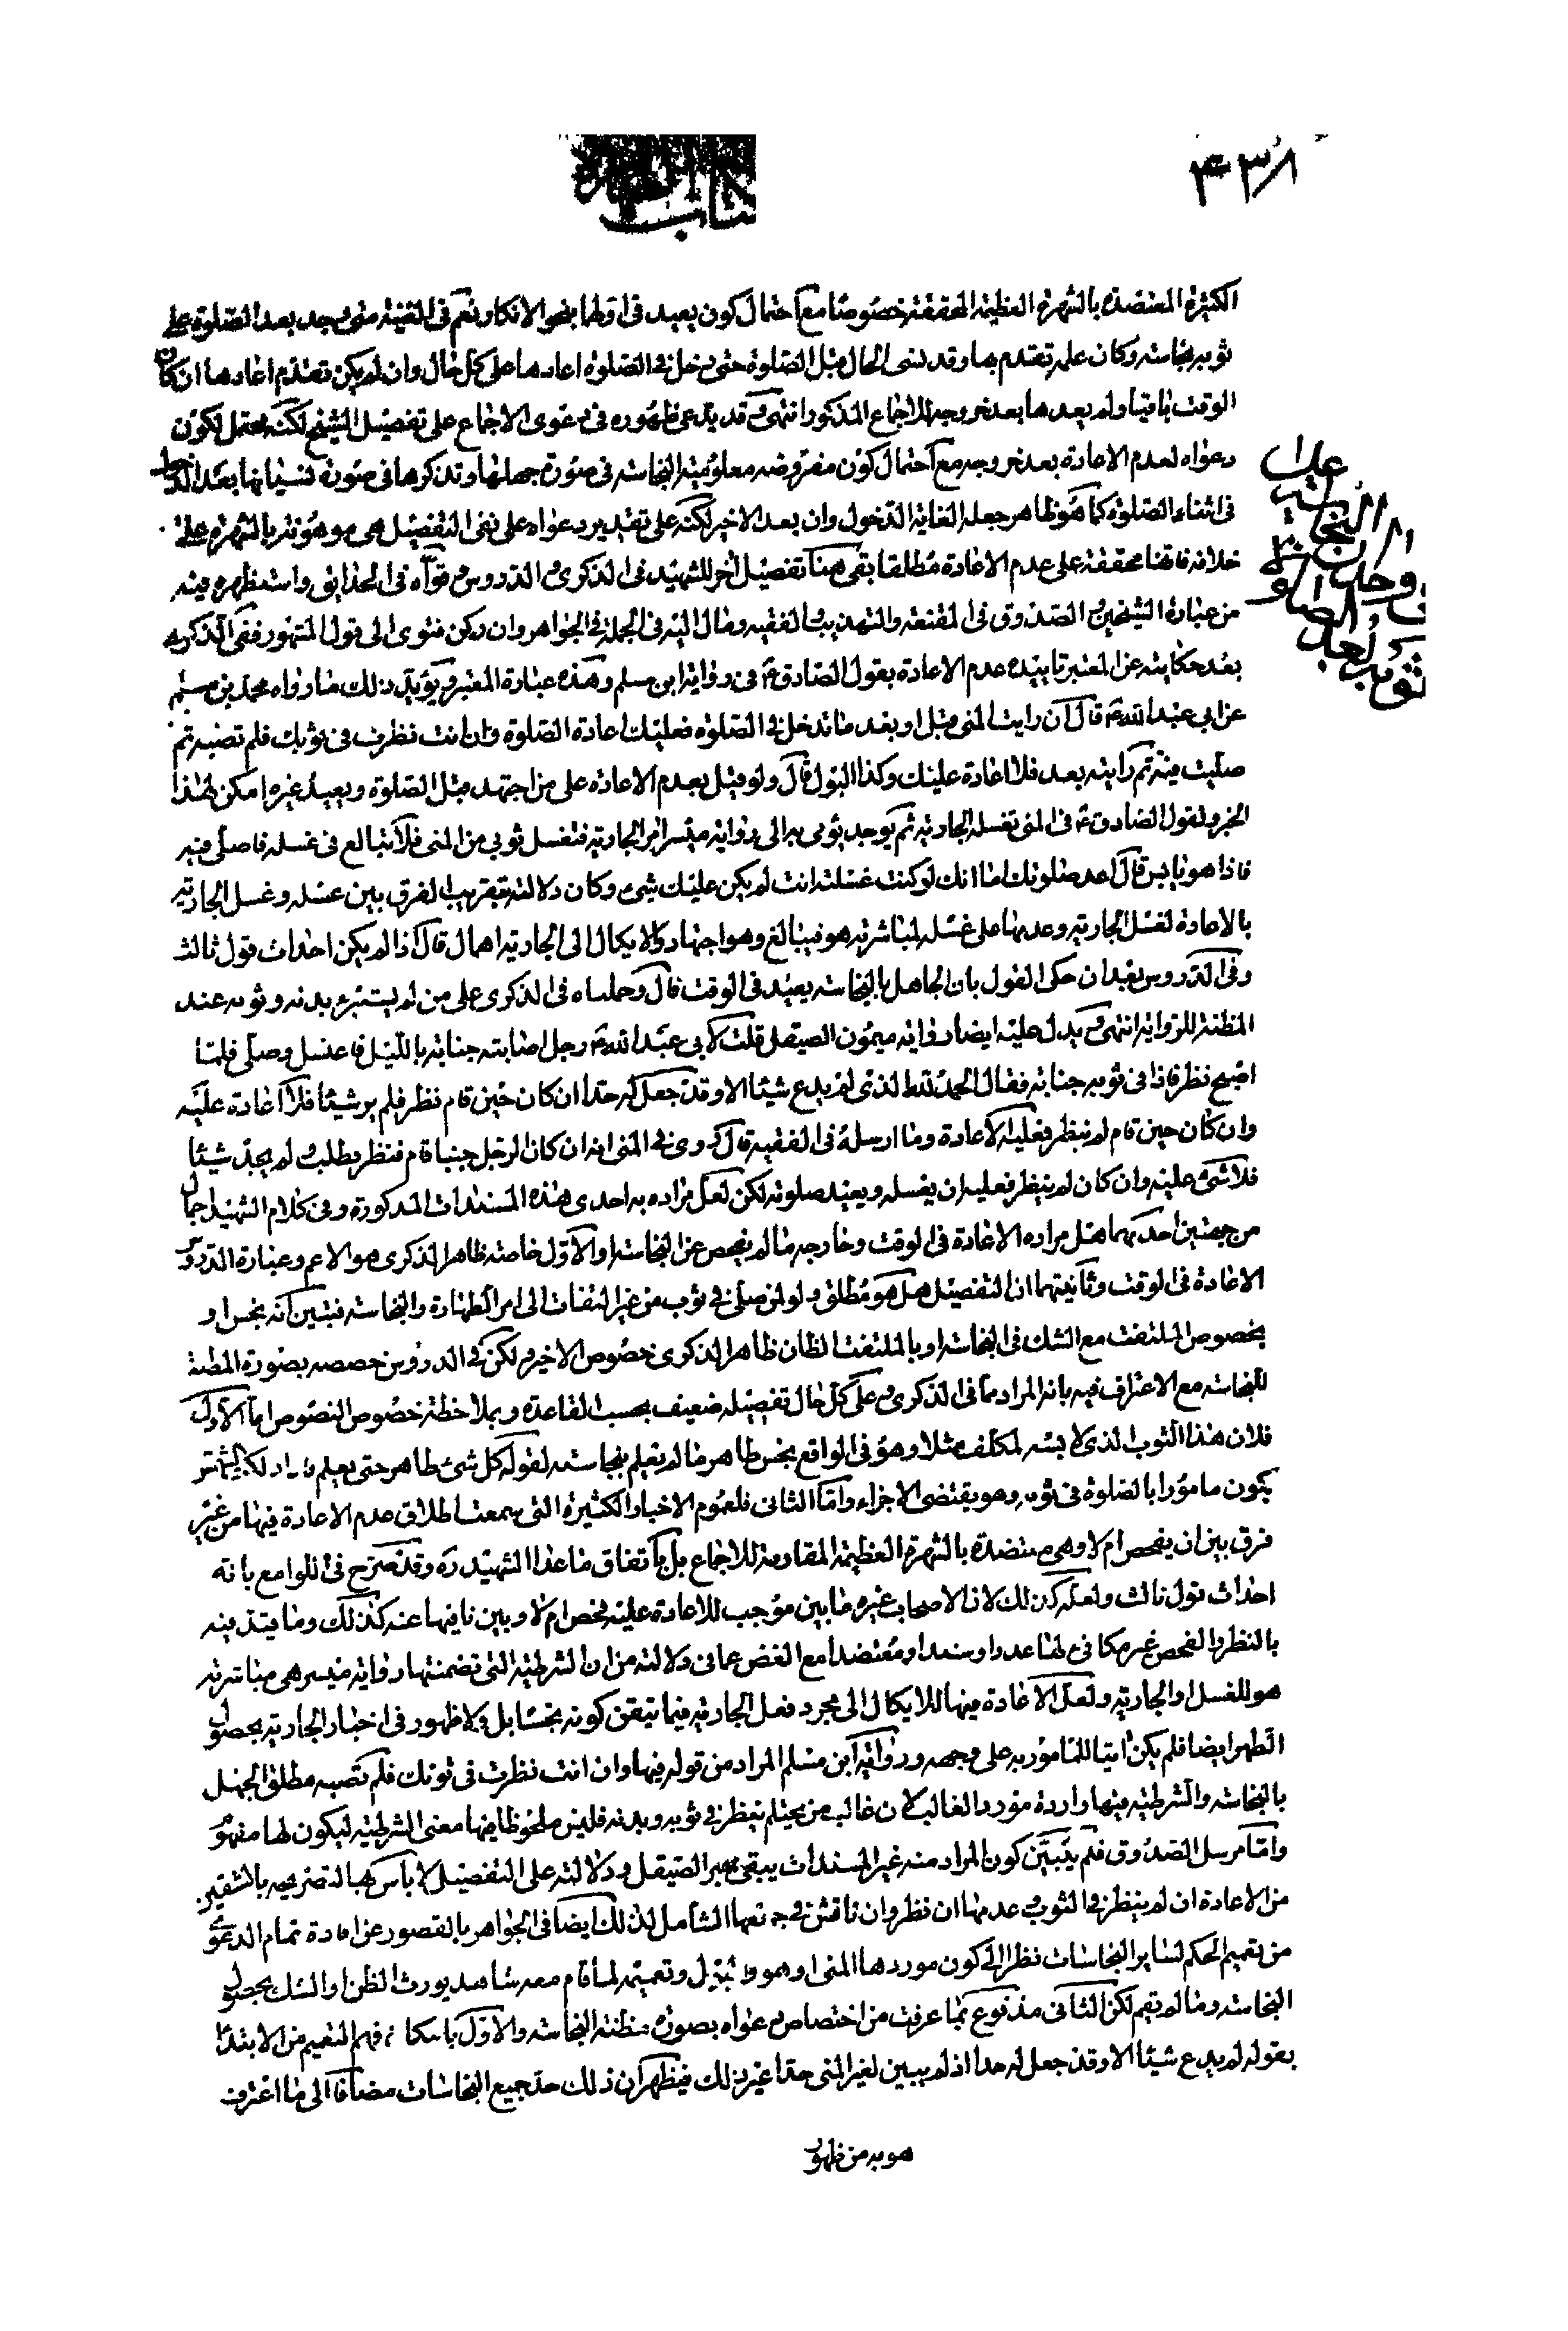 ٤٣٨
الكثيرة المعتضدة بالشهرة العظيمة المحققة خصوصًا مع احتمال كون يعيد في اولها بنحو الانكار ونعم في الغنية متى وجد بعد الصلوة على
ثوبه نجاسة وكان علم تقدم بها وقد نسى الحال قبل الصلوة حتى دخل في الصلوة اعادها على كل حال وان لم يكن تقدم اعادها ان كان
الوقت باقيا ولم يعدها بعد خروجه للاجماع المذكور انتهى وقد يدعى ظهوره في دعوى الاجماع على تفصيل الشيخ لكنه محتمل لكون
دعواه لعدم الاعادة بعد خروجه مع احتمال كون مفروضه معلومية النجاسة في صورة جهلها وتذكرها في صورة نسيانها بعد الدخول
في اثناء الصلوة كما هو ظاهر جعله الغاية الدخول وان بعد الاخير لكنه على تقدير دعواه على نفى التفصيل هى موهونة بالشهرة على
خلافه فانها محققة على عدم الاعادة مطلقا بقى هنا تفصيل اخر للشهيد في الذكرى والدروس وقواه في الحدائق واستظهره فيه
من عبارة الشيخين والصدوق في المقنعة والتهذيب والفقيه ومال اليه في الجملة في الجواهر وان ركن فتوى الى قول المشهور ففي الذكرى
بعد حكايته عن المعتبر تاييده عدم الاعادة بقول الصادق ع في رواية ابن مسلم وهذه عبارة المعتبر ويؤيد ذلك ما رواه محمد بن مسلم
عن ابي عبد الله ع قال ان رايت المنى قبل او بعد ما تدخل في الصلوة فعليك اعادة الصلوة وان انت نظرت في ثوبك فلم تصبه ثم
صليت فيه ثم رايته بعد فلا اعادة عليك وكذا البول قال ولو قيل بعدم الاعادة على من اجتهد قبل الصلوة ويعيد غيره امكن لهذا
الخبر ولقول الصادق ع في المنى تغسله الجارية ثم يوجد يؤمى به الى رواية ميسر امر الجارية فتغسل ثوبى من المنى فلا تبالع في غسله فاصلى فيه
فاذا هو يابس قال اعد صلوتك اما انك لو كنت غسلت انت لم يكن عليك شئ وكان دلالته بتقريب الفرق بين غسله وغسل الجارية
بالاعادة لغسل الجارية وعدمها على غسله لمباشرته هو فيبالغ وهو اجتهاد والايكال الى الجارية اهمال قال اذا لم يكن احداث قول ثالث
وفي الدروس بعد ان حكى القول بان الجاهل بالنجاسة يعيد في الوقت قال وحملناه في الذكرى على من لم يستبرء بدنه وثوبه عند
المظنة للرواية انتهى ويدل عليه ايضا رواية ميمون الصيقل قلت لابى عبد الله ع رجل اصابته جنابة بالليل فاغتسل وصلى فلما
اصبح نظر فاذا في ثوبه جنابة فقال الحمد لله الذى لم يدع شيئا الا وقد جعل له حدا ان كان حين قام نظر فلم ير شيئا فلا اعادة عليه
وان كان حين قام لم ينظر فعليه الاعادة وما ارسله في الفقيه قال روى في المنى انه ان كان الرجل جنبا قام فنظر وطلب ولم يجد شيئا
فلا شئ عليه وان كان لم ينظر فعليه ان يغسله ويعيد صلوته لكن لعل مراده به احدى هذه المسندات المذكورة وفي كلام الشهيد اجمال
من جهتين احديهما هل مراده الاعادة في الوقت وخارجه ما لم يفحص عن النجاسة او الاول خاصة ظاهر الذكرى هو الاعم وعبارة الدروس
الاعادة في الوقت وثانيتهما ان التفصيل هل هو مطلق ولو لمن صلى في ثوب من غير التفات الى امر الطهارة والنجاسة فتبين انه نجس او
بخصوص الملتفت مع الشك في النجاسة او بالملتفت الظان ظاهر الذكرى خصوص الاخير ولكن في الدروس خصصه بصورة المظنة
للنجاسة مع الاعتراف فيه بانه المراد بما في الذكرى وعلى كل حال تفصيله ضعيف بحسب القاعدة وبملاحظة خصوص النصوص اما الاول
فلان هذا الثوب الذى لابسه المكلف مثلا وهو في الواقع نجس طاهر ما لم يعلم بنجاسته لقوله كل شئ طاهر حتى يعلم
يكون مامورا بالصلوة في ثوبه وهو يقتضى الاجزاء واما الثانى فلعموم الاخبار الكثيرة التى سمعت اطلاق عدم الاعادة فيها من غير
فرق بين ان يفحص ام لا وهى معتضدة بالشهرة العظيمة المقاومة للاجماع بل باتفاق ما عدا الشهيد ره وقد صرح في اللوامع بانه
احداث قول ثالث ولعله كذلك لان الاصحاب غيره ما بين موجب للاعادة عليه فحص ام لا وبين نافيها عنه كذلك وما يقيد فيه
بالنظر والفحص غير مكافئ لها عددا وسندا ومعتضدا مع الغض عما في دلالته من ان الشرطية التى تضمنتها رواية ميسر هى مباشرته
هو للغسل او الجارية ولعل الاعادة فيها للايكال الى مجرد فعل الجارية فيما تيقن كونه نجسا بل ولا ظهور في اخبار الجارية بحصول
الطهر ايضا فلم يكن اتيا للمامور به على وجهه ورواية ابن مسلم المراد من قوله فيها وان انت نظرت في ثوبك فلم تصبه مطلق الجهل
بالنجاسة والشرطية فيها واردة مورد الغالب لان غالب من يحتلم ينظر في ثوبه وبدنه فليس ملحوظا فيها معنى الشرطية ليكون لها مفهوم
واما مرسل الصدوق فلم يتبين كون المراد منه غير المسندات يبقى خبر الصيقل ودلالته على التفصيل لا بأس بها لتصريحه بالشقين
من الاعادة ان لم ينظر في الثوب وعدمها ان نظر وان ناقش في جمعها الشامل لذلك ايضا في الجواهر بالقصور عن افادة تمام الدعوى
من تعميم الحكم لساير النجاسات نظرا الى كون موردها المنى وتعميمه لما قام معه شاهد يورث الظن او الشك بحصول
النجاسة وما لم يقم لكن الثانى مدفوع بما عرفت من اختصاص دعواه بصورة مظنة النجاسة والاول بامكان فهم التعميم من الابتداء
بقوله لم يدع شيئا الا وقد جعل له حدا اذ لم يبين لغير المنى حدا غير ذلك فيظهر ان ذلك حد جميع النجاسات مضافا الى ما اعترف
هو به من ظهور